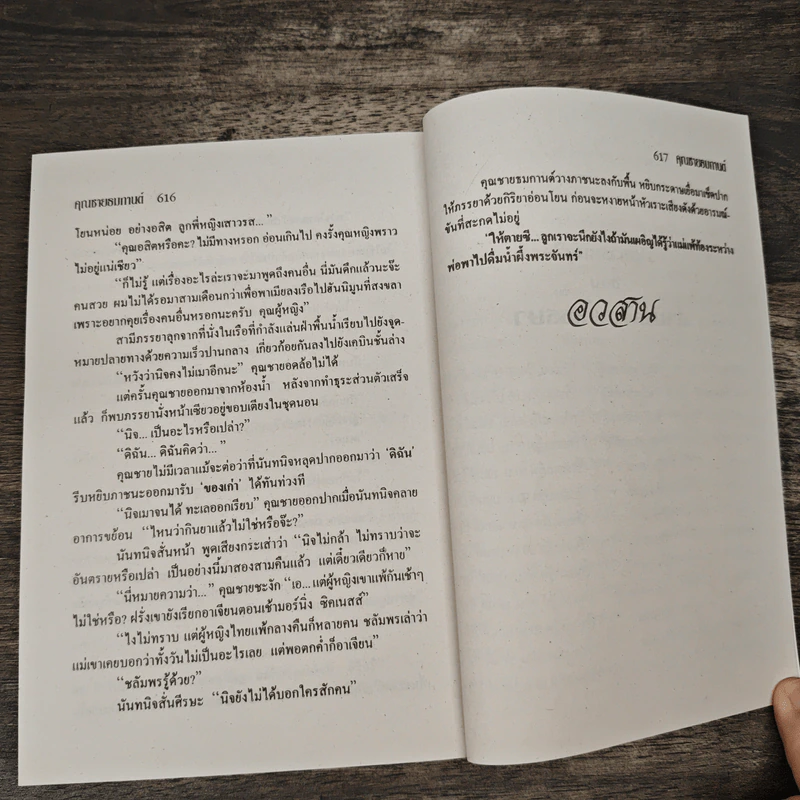 คุณชายธมกานต์ 616
โยนหน่อย อย่างอสิต ลูกพี่หญิงเสาวรส..."
"คุณอสิตหรือคะ? ไม่มีทางหรอก อ่อนเกินไป คงรั้งคุณหญิงพราว
ไม่อยู่แน่เชียว"
"ก็ไม่รู้ แต่เรื่องอะไรล่ะเราจะมาพูดถึงคนอื่น นี่มันดึกแล้วนะจ๊ะ
คนสวย ผมไม่ได้รอมาสามเดือนกว่าเพื่อพาเมียลงเรือไปฮันนีมูนที่สงขลา
เพราะอยากคุยเรื่องคนอื่นหรอกนะครับ คุณผู้หญิง"
สามีภรรยาลุกจากที่นั่งในเรือที่กำลังแล่นฝ่าพื้นน้ำเรียบไปยังจุด-
หมายปลายทางด้วยความเร็วปานกลาง เกี่ยวก้อยกันลงไปยังเคบินชั้นล่าง
"หวังว่านิจคงไม่เมาอีกนะ" คุณชายอดล้อไม่ได้
แต่ครั้นคุณชายออกมาจากห้องน้ำ หลังจากทำธุระส่วนตัวเสร็จ
แล้ว ก็พบภรรยานั่งหน้าเซียวอยู่ขอบเตียงในชุดนอน
"นิจ... เป็นอะไรหรือเปล่า?"
"ดิฉัน... ดิฉันคิดว่า..."
คุณชายไม่มีเวลาแม้จะต่อว่าที่นันทนิจหลุดปากออกมาว่า 'ดิฉัน'
รีบหยิบภาชนะออกมารับ 'ของเก่า' ได้ทันท่วงที
"นิจเมาจนได้ ทะเลออกเรียบ" คุณชายออกปากเมื่อนันทนิจคลาย
อาการขย้อน "ไหนว่ากินยาแล้วไม่ใช่หรือจ๊ะ?"
นันทนิจสั่นหน้า พูดเสียงกระเส่าว่า "นิจไม่กล้า ไม่ทราบว่าจะ
อันตรายหรือเปล่า เป็นอย่างนี้มาสองสามคืนแล้ว แต่เดี๋ยวเดียวก็หาย"
"นี่หมายความว่า..." คุณชายชะงัก "เอ... แต่ผู้หญิงเขาแพ้กันเช้าๆ
ไม่ใช่หรือ? ฝรั่งเขายังเรียกอาเจียนตอนเช้ามอร์นิ่ง ซิคเนสส์"
"ไงไม่ทราบ แต่ผู้หญิงไทยแพ้กลางคืนก็หลายคน ชลัมพรเล่าว่า
แม่เขาเคยบอกว่าทั้งวันไม่เป็นอะไรเลย แต่พอตกค่ำก็อาเจียน"
"ชลัมพรรู้ด้วย?"
นันทนิจสั่นศีรษะ "นิจยังไม่ได้บอกใครสักคน"
617 คุณชายธมกานต์
คุณชายธมกานต์วางภาชนะลงกับพื้น หยิบกระดาษเยื่อมาเช็ดปาก
ให้ภรรยาด้วยกิริยาอ่อนโยน ก่อนจะหงายหน้าหัวเราะเสียงดังด้วยอารมณ์-
ขันที่สะกดไม่อยู่
"ให้ตายซี... ลูกเราจะนึกยังไงถ้ามันเผอิญได้รู้ว่าแม่แพ้ท้องระหว่าง
พ่อพาไปดื่มน้ำผึ้งพระจันทร์"
อวสาน